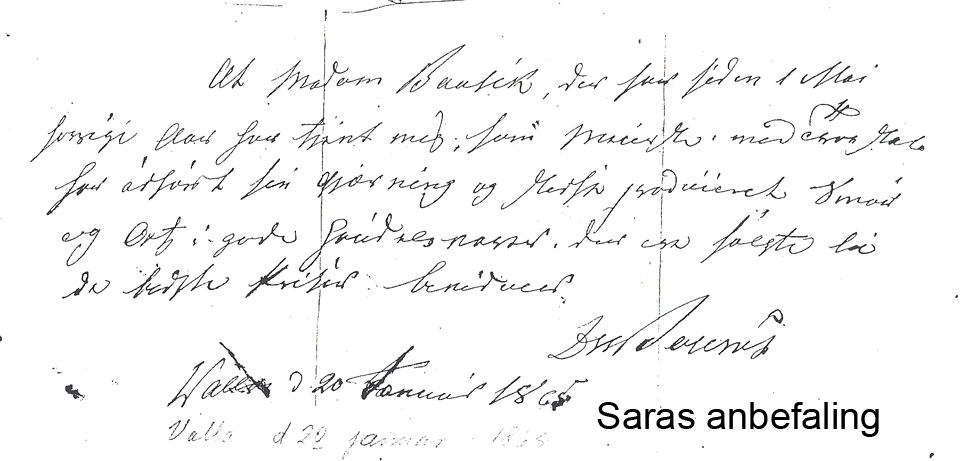 At Madam Baasik, der har siden 1 Mai
forrige Aar har tjent mig, som Meierske med
har udført sin Gjærning og produceret Smør
og Ost i gode Handelsvarer, der ere solgte til
de bedste Priser bevidnes
Valla d 20 Januar 1865
Valla d 20 januar 1865
Saras anbefaling